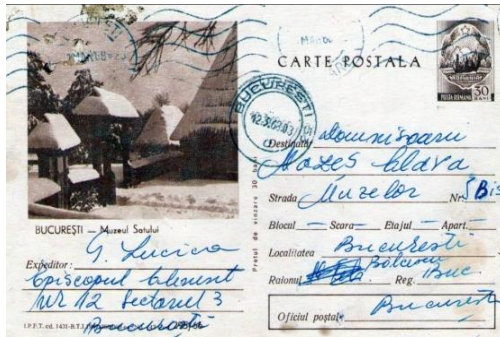 CARTE POSTALA
POSTA ROMANA 30 BANI
BUCUREȘTI
Destinatar Domnisoara
Mozes Clara
Strada Muzelor Nr. 5 Bis
Blocul — Scara — Etajul — Apart. —
Localitatea București
Raionul Bălcescu Reg. Buc
București
Oficiul poștal
BUCUREȘTI — Muzeul Satului
Expeditor: G. Lucica
Episcopul Chesarie
Nr 12 Sectorul 3
București
Prețul de vînzare 30 bani